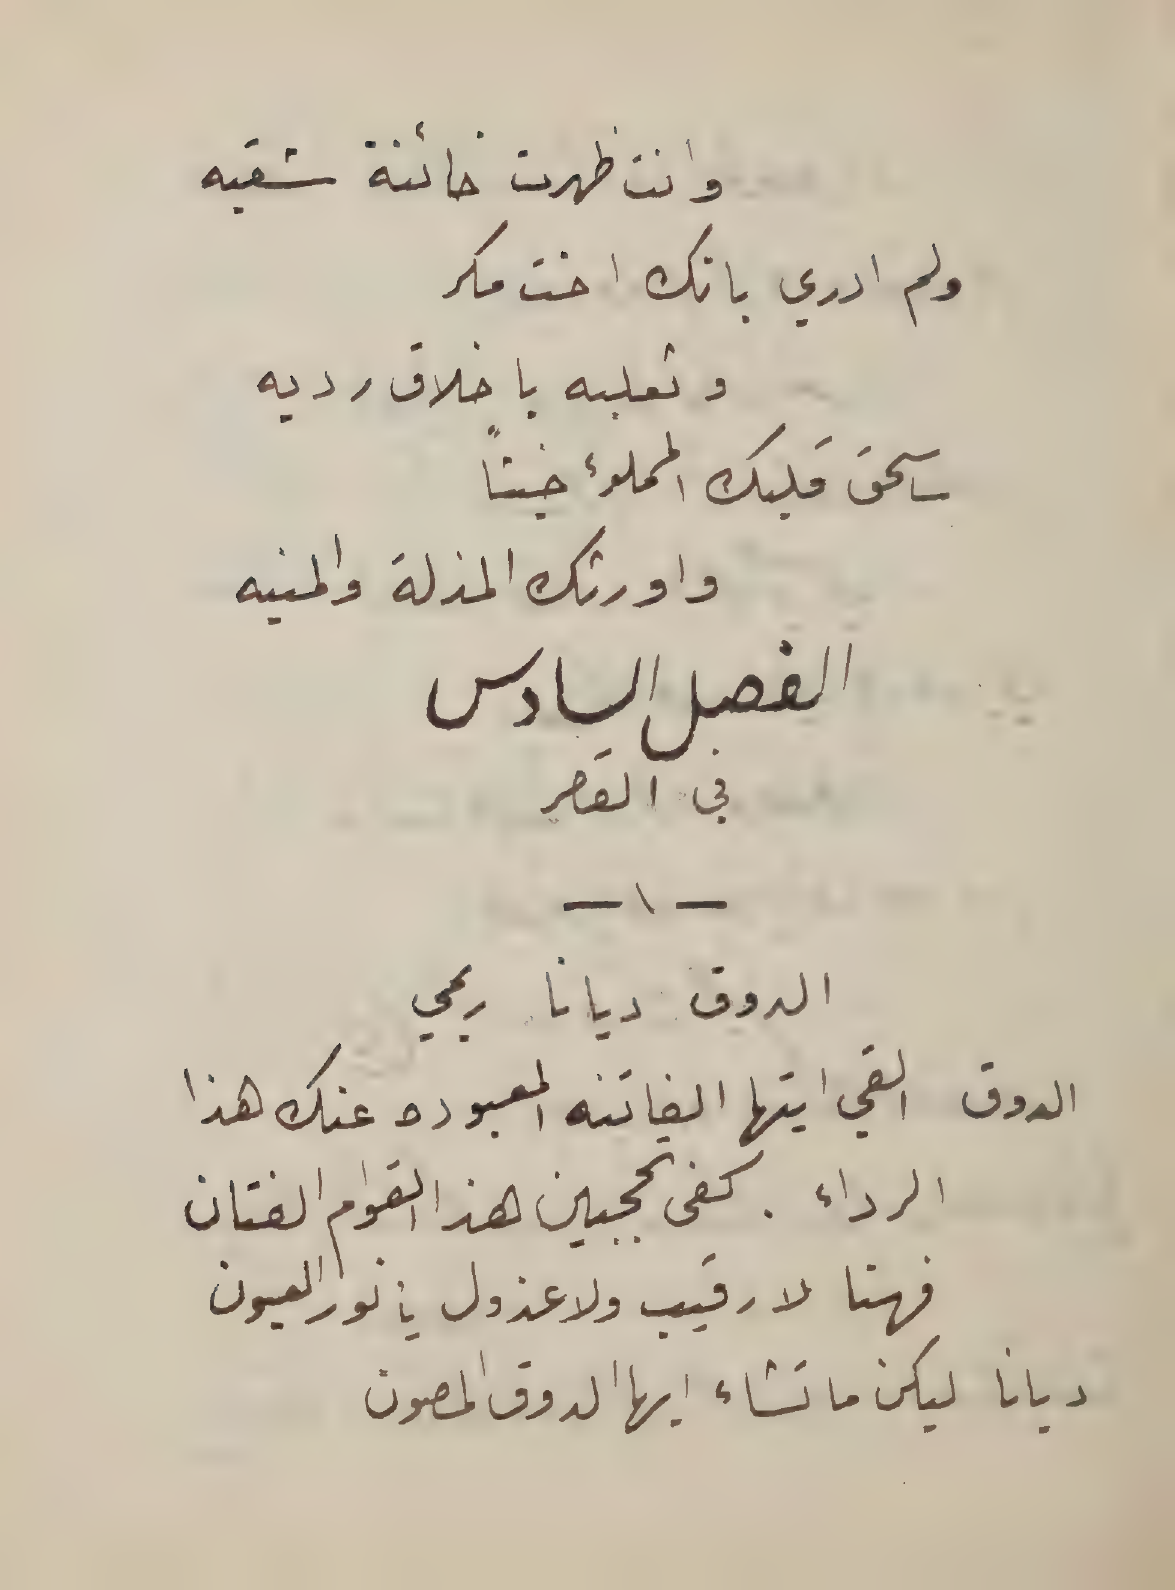 وانت ظهرت خائنة شقيه
ولم ادري بانك اخت مكر
وثعلبه باخلاق رديه
سأسحق قلبك المملوء خبثاً
واورثك المذلة والمنيه
الفصل السادس
في القصر
— ١ —
الدوق ديانا ريمي
الدوق القي ايتها الفاتنه المعبوده عنك هذا
الرداء . كفى تحجبين هذا القوام الفتان
فهنا لا رقيب ولا عذول يا نور العيون
ديانا ليكن ما تشاء ايها الدوق المصون